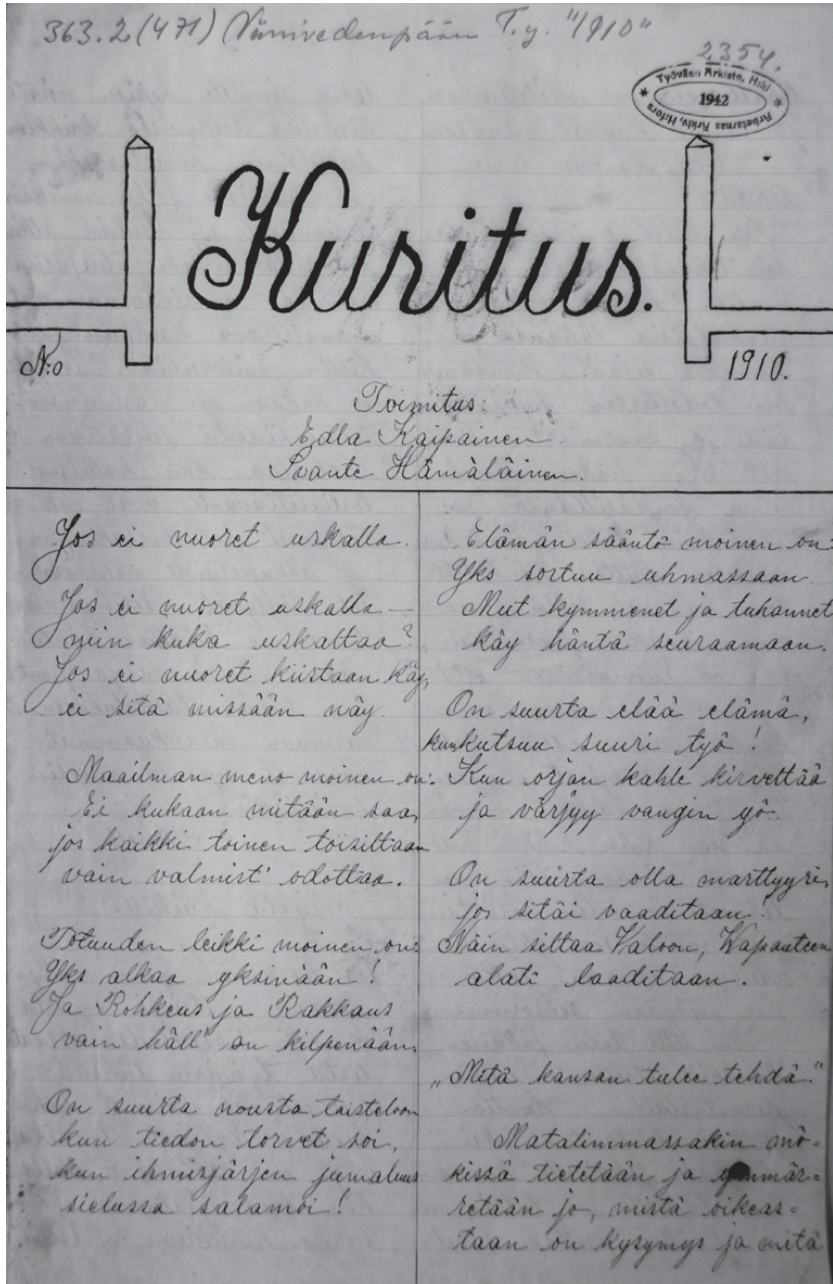 363.2(471) Viinivedenpään T.y. "1910"
2354.
Työväen Arkisto, Hlki
1942
Arbetarnas Arkiv, H:fors
Kuritus.
N:o
1910.
Toimitus:
Edla Kaipainen
Svante Hämäläinen.
Jos ei nuoret uskalla.
Jos ei nuoret uskalla —
niin kuka uskaltaa?
Jos ei nuoret kiistaan käy,
ei sitä missään näy.
Maailman meno moinen on:
Ei kukaan mitään saa,
jos kaikki toinen toisiltaan
vain valmist' odottaa.
Totuuden leikki moinen on:
Yks alkaa yksinään!
Ja Rohkeus ja Rakkaus
vain häll' on kilpenään.
On suurta nousta taisteloon
kun tiedon torvet soi,
kun ihmisjärjen jumaluus
sielussa salamoi!
Elämän sääntö moinen on:
Yks sortuu uhmassaan.
Mut kymmenet ja tuhannet
käy häntä seuraamaan.
On suurta elää elämä,
kun kutsuu suuri työ!
Kun orjan kahle kirvettää
ja värjyy vangin yö.
On suurta olla marttyyri,
jos sitäi vaaditaan!
Näin siltaa Valoon, Wapauteen
alati laaditaan.
„Mitä kansan tulee tehdä."
Matalimmassakin mö=
kissä tietetään ja ymmär=
retään jo, mistä oikeas=
taan on kysymys ja mitä